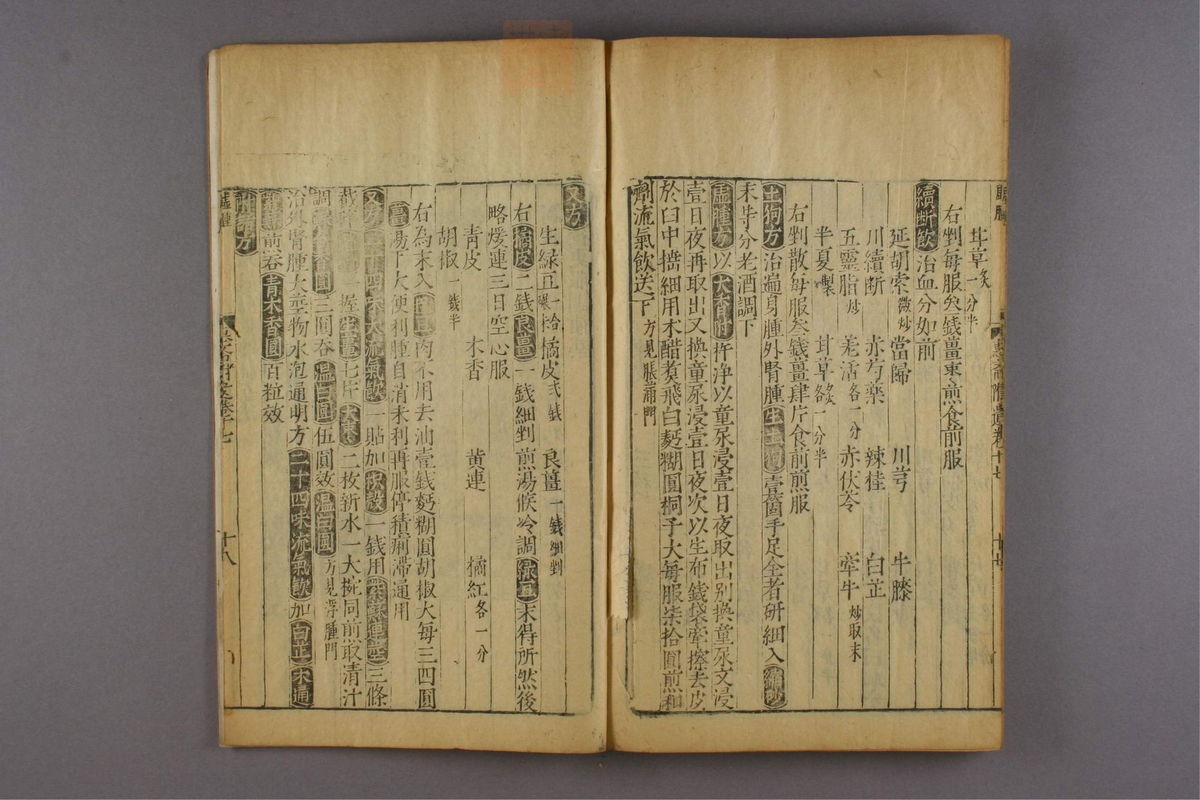 甘草炙 一分半
右剉每服叁錢薑棗煎食前服
續斷飲 治血分如前
延胡索微炒 當歸 川芎 牛膝
川續斷 赤芍藥 辣桂 白芷
五靈脂炒 羌活各一分 赤伏苓 牽牛炒取末
半夏製 甘草炙各一分半
右剉散每服叁錢薑肆片食前煎服
土狗方 治遍身腫外腎腫生土狗壹箇手足全者研細入縮砂
末等分老酒調下
虛腫方 以大香附杵淨以童尿浸壹日夜取出別換童尿又浸
壹日夜再取出又換童尿浸壹日夜次以生布錢袋牽擦去皮
於臼中擣細用末醋煮飛白麪糊圓桐子大每服柒拾圓煎和
劑流氣飲送下 方見脹滿門
又方
生綠豆一百拾 橘皮貳錢 良薑一錢細剉
右橘皮二錢良薑一錢細剉煎湯候冷調綠豆末得所然後
略煖連三日空心服
青皮 木香 黃連 橘紅各一分
胡椒一錢半
右為末入 肉不用去油壹錢麪糊圓胡椒大每三四圓
薑湯下大便利腫自消未利再服停積痢滯通用
又方 二十四味大流氣飲一貼加枳殼一錢用紫蘇連莖三條
一握生薑七片大棗二枚新水一大椀同煎取清汁
調 三圓吞溫白圓伍圓效溫白圓方見浮腫門
治外腎腫大莖物水泡通明方二十四味流氣飲加白芷木通
煎吞青木香圓百粒效
附諸方
十八